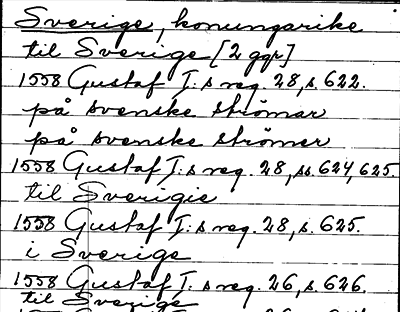 Sverige, konungarike
til Sverige [2 ggr]
1558 Gustaf I:s reg. 28, s. 622.
på svenske strömar
på svenske strömer
1558 Gustaf I:s reg. 28, ss. 624, 625.
til Sverigie
1558 Gustaf I:s reg. 28, s. 625.
i Sverige
1558 Gustaf I:s reg. 26, s. 626.
til Sverige